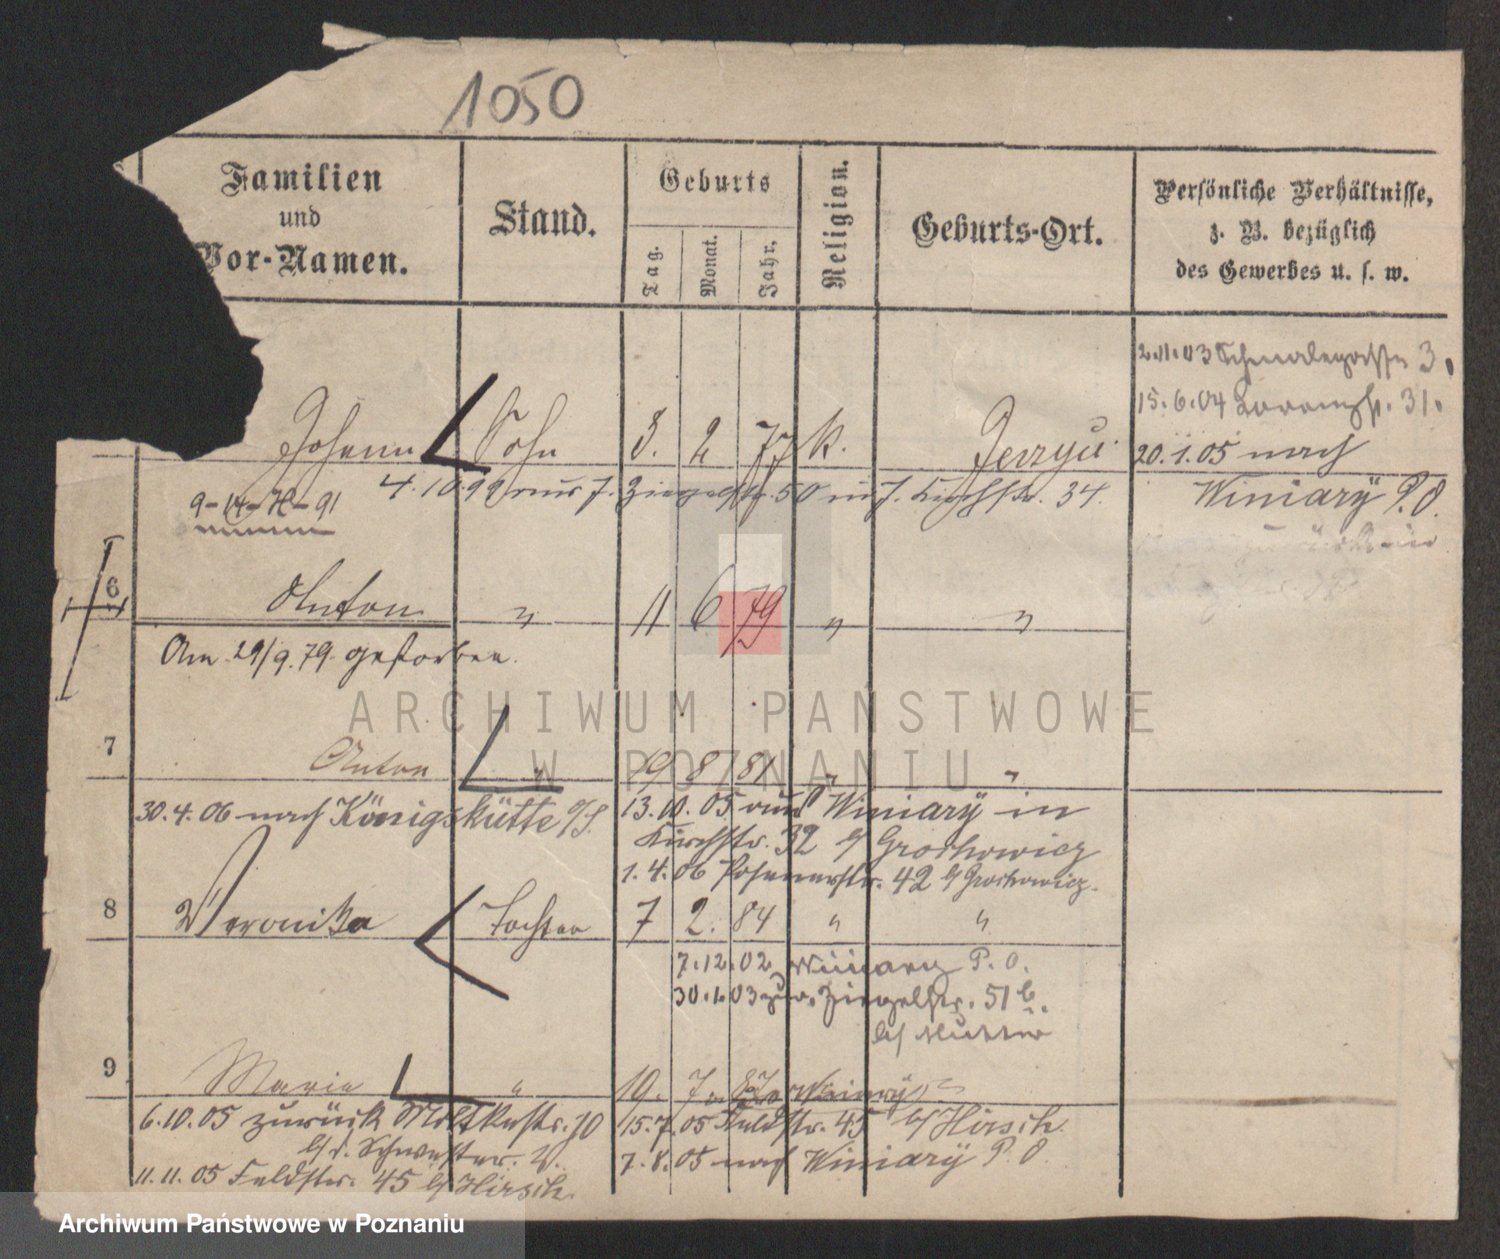 1050
Familien und Vor-Namen.
Stand.
Geburts
Tag.
Monat.
Jahr.
Religion.
Geburts-Ort.
Persönliche Verhältnisse, z. B. bezüglich des Gewerbes u. s. w.
2.11.03 3.
15.6.04 31.
Johann Sohn 8. 2 77 k. Jerzyce
20.1.05 nach
Winiary P.O.
4.10.99 aus J. Ziegelstr. 50 in J. Kirchstr. 34.
9-14-78-91
6
Anton " 11 6 79 " "
Am 29/9.79. gestorben.
7
Anton " 19 8 81 " "
30.4.06 nach Königshütte O/S.
13.10.05 aus Winiary in
Kirchstr. 32 b/ Grochowicz
1.4.06 Posenerstr. 42 b/ Grochowicz.
8
Veronika Tochter 7 2. 84 " "
7.12.02 Winiary P.O.
30. .03 zur. Ziegelstr. 51 b.
b/ Mutter
9
Marie " 10. 7. 87
6.10.05 zurück Moltkestr. 10
b/ d. Schwester.
11.11.05 Feldstr. 45 b/ Hirsch.
15.7.05 Feldstr. 45 b/ Hirsch.
7.8.05 nach Winiary P.O.
ARCHIWUM PAŃSTWOWE
W POZNANIU
Archiwum Państwowe w Poznaniu